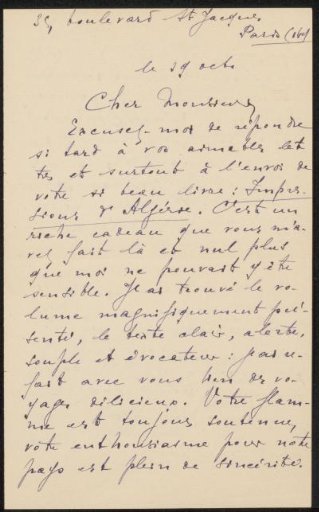 boulevard St Jacques
Paris
le 29 octo
Cher Monsieur,
Excusez-moi de répondre
si tard à vos aimables let
tres et surtout à l'envoi de
votre si beau livre : Impres
sions d'Algérie. C'est un
riche cadeau que vous m'a-
vez fait là et nul plus
que moi ne pouvait y être
sensible. J'ai trouvé le vo-
lume magnifiquement pré-
senté, le texte clair, alerte,
souple et évocateur : j'ai
fait avec vous un vo-
yage délicieux. Votre flam-
me est toujours soutenue,
votre enthousiasme pour notre
pays est plein de sincérité.